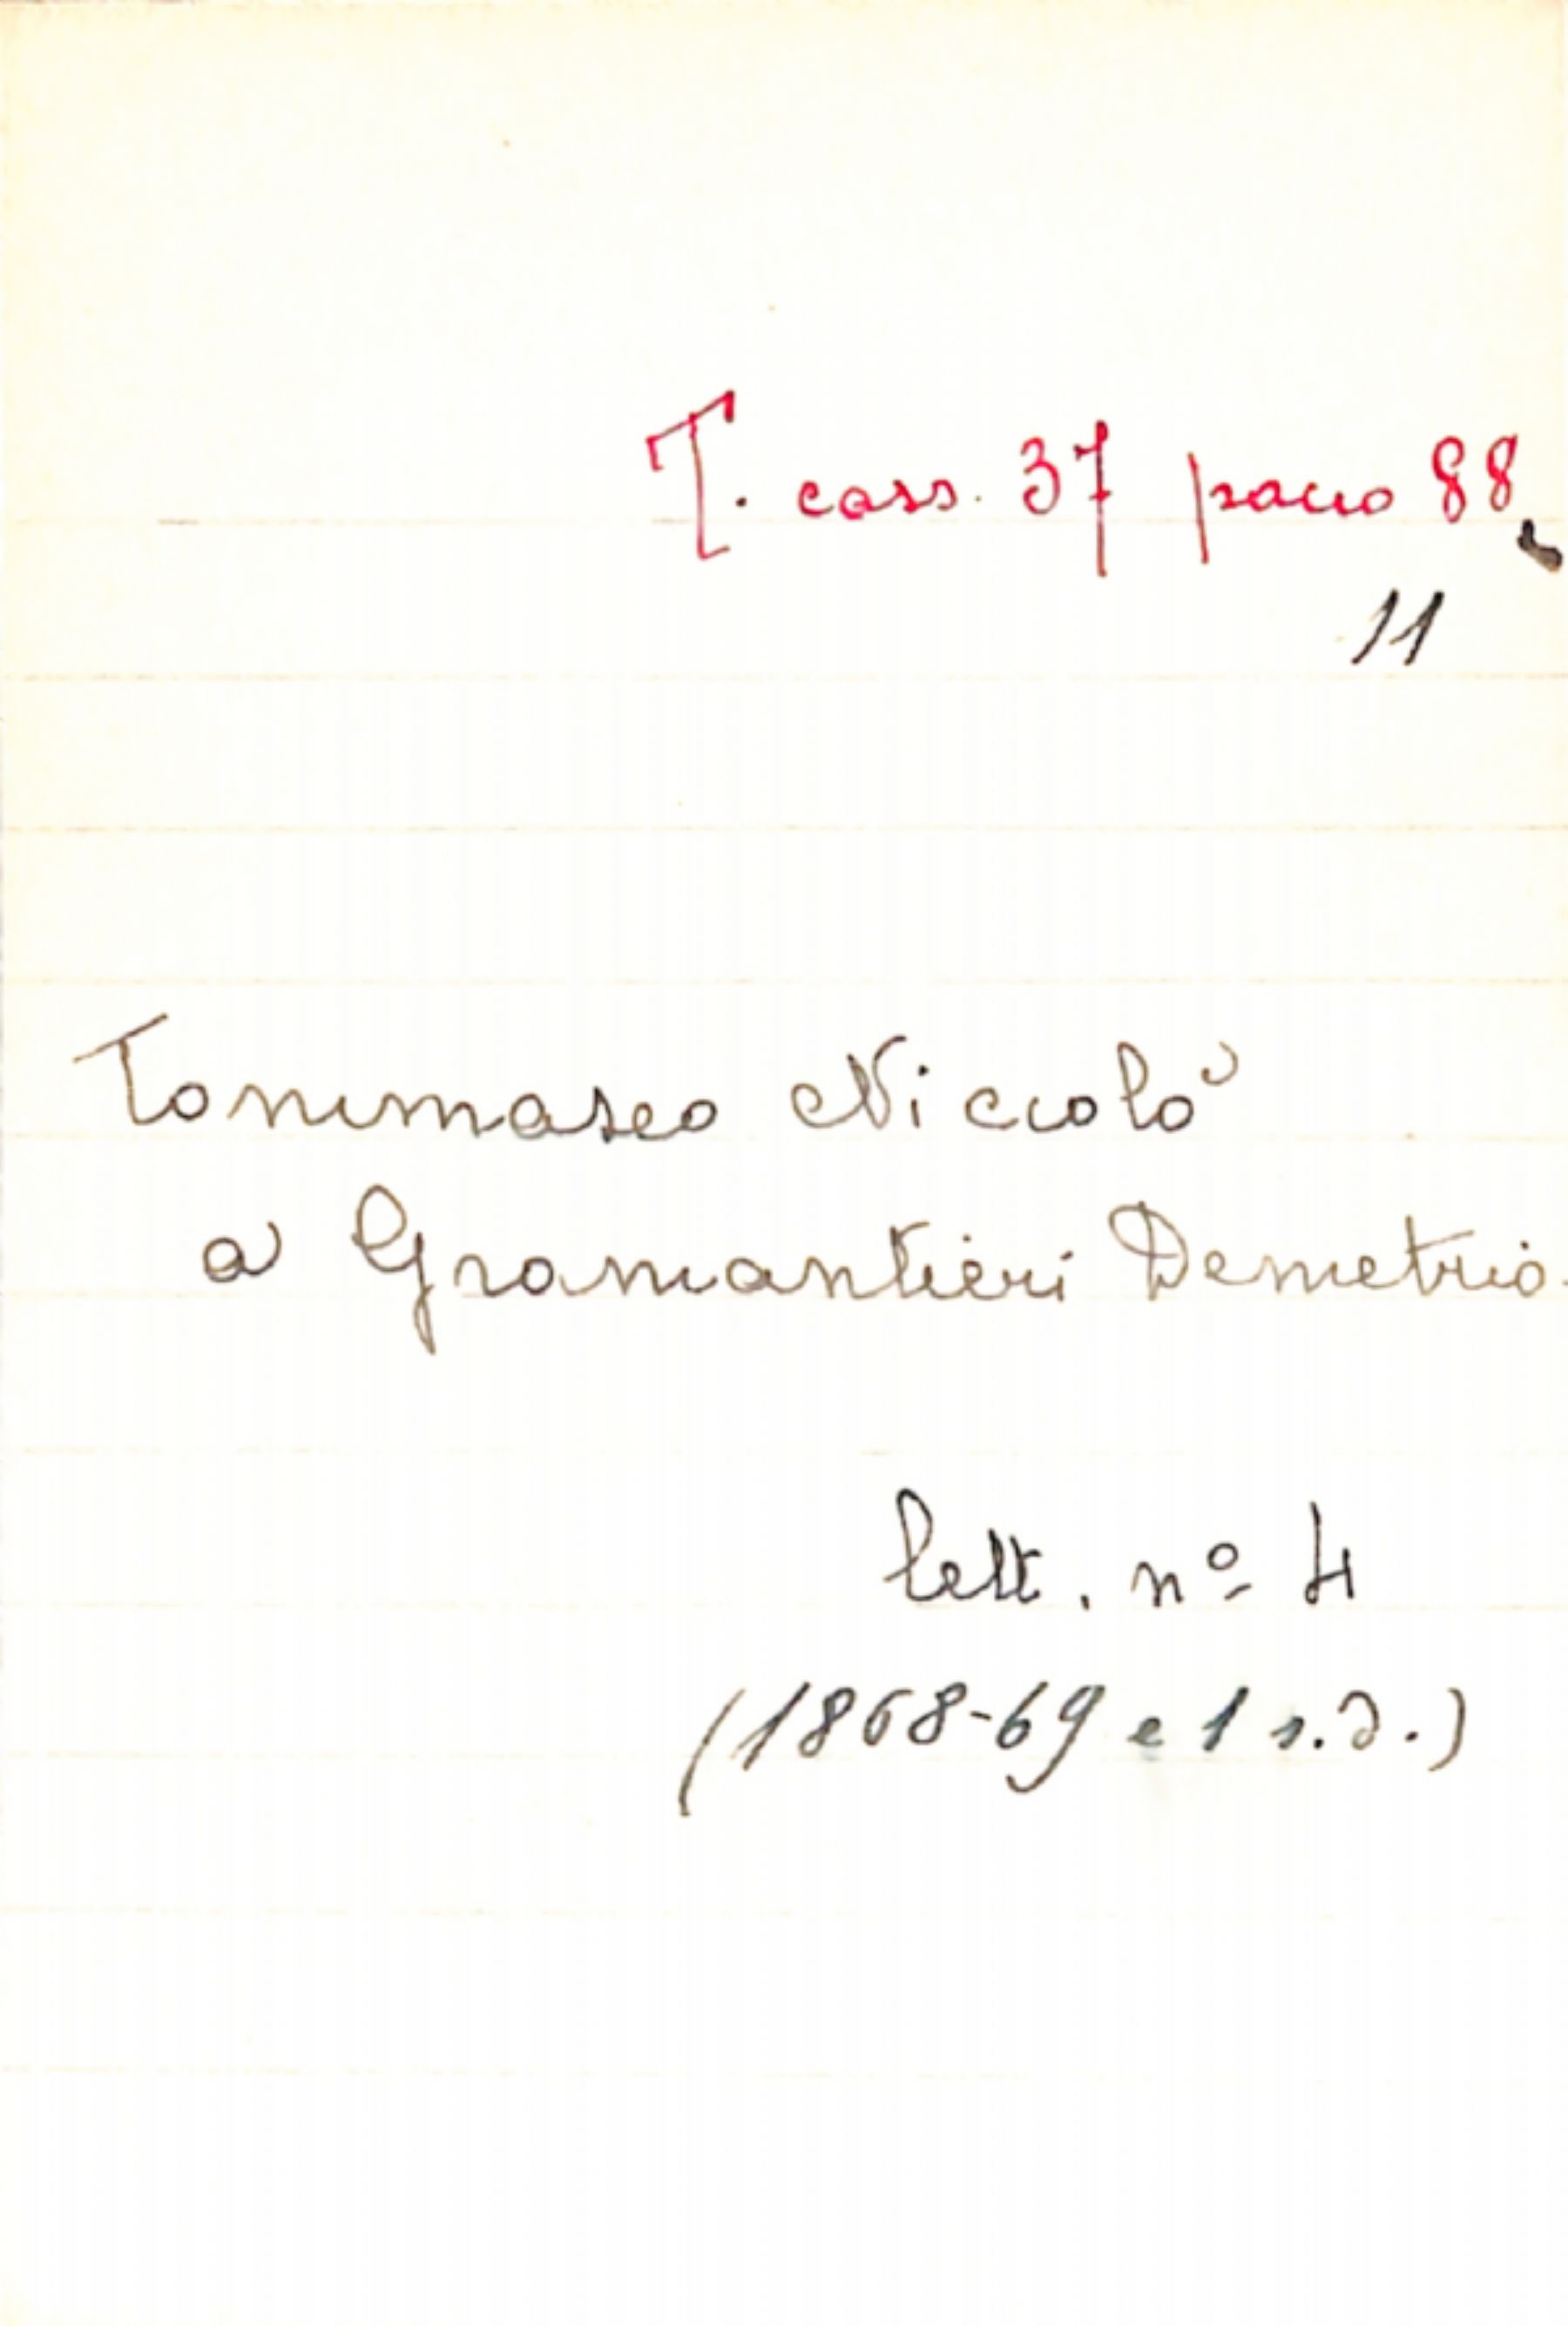 T. cass. 37 pacco 88
11
Tommaseo Niccolò
a Gramantieri Demetrio.
lett. nº 4
(1868-69 e 1 s.d.)